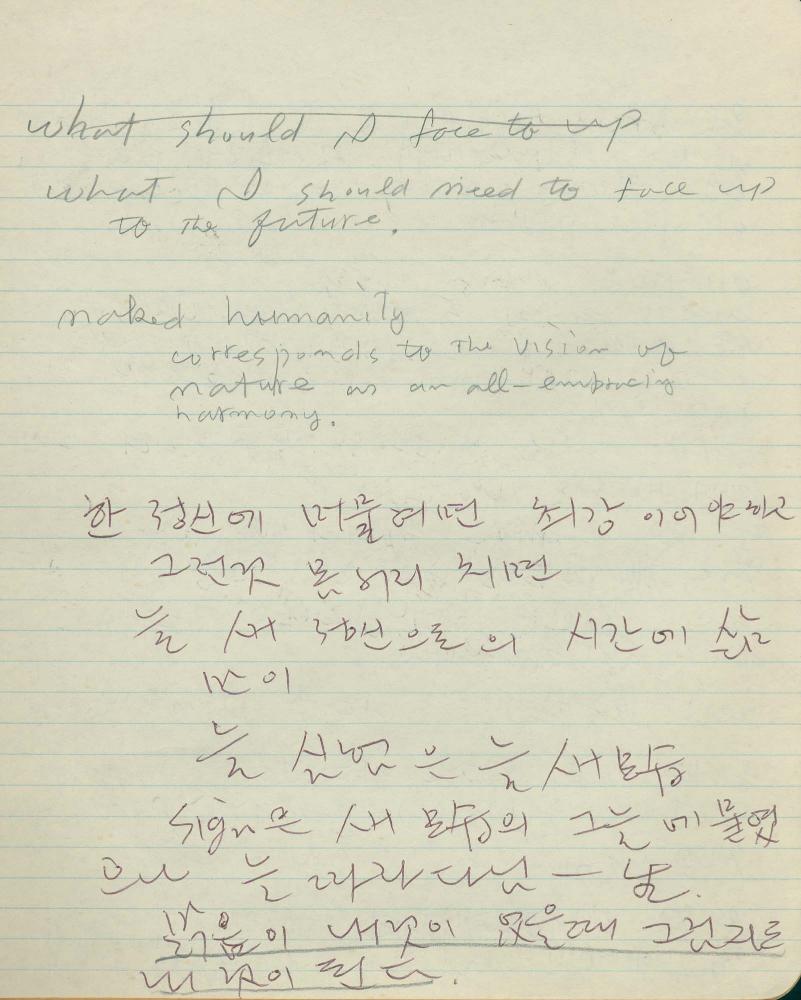 what should I face to up
what I should need to face up
to the future.
naked humanity
corresponds to the vision of
nature as an all-embracing
harmony.
한 정신에 머물려면 최강 이어야 하고
그런것 못허리 치면
늘 새 정신으로 의 시간에 삶
만이
늘 실업은 늘 새 모습
sign은 새 모습의 그늘에 물렸
으나 늘 따라 다님 —
밝음이 내것이 없을때 그림자도
내 것이 된다.